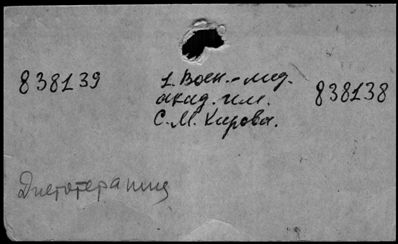 838139
1. Воен.-мед.
акад. им.
С. М. Кирова.
838138
Диетотерапия